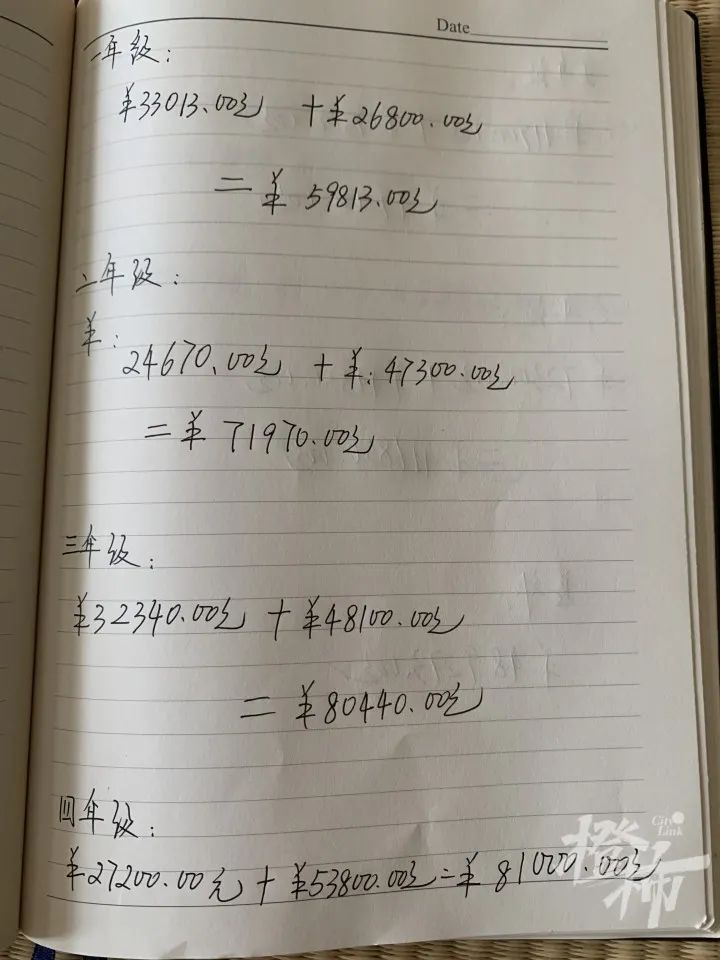 Date
一年级：
¥33013.00元 +¥26800.00元
=¥ 59813.00元
二年级：
¥：
24670.00元 +¥：47300.00元
=¥ 71970.00元
三年级：
¥32340.00元 +¥48100.00元
=¥80440.00元
四年级：
¥27200.00元+¥53800.00元=¥81000.00元
橙柿
City Link